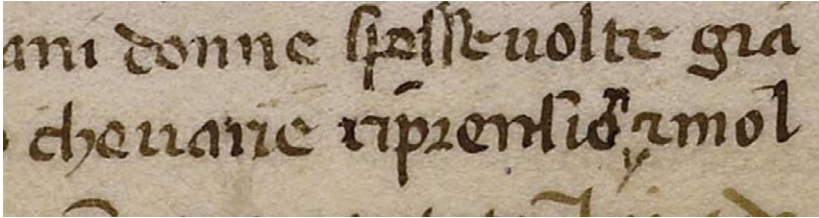 ani donne spesse uolte gra
cheuarie rip̄rensiōn ⁊ mol